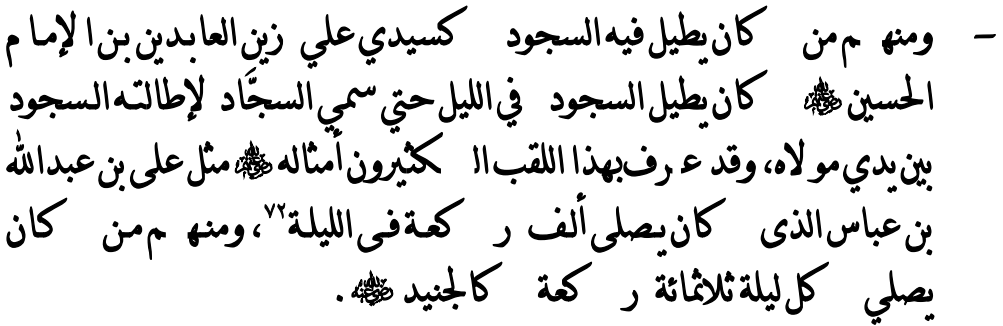 - ومنهم من كان يطيل فيه السجود كسيدي علي زين العابدين بن الإمام
الحسين ﵁ كان يطيل السجود في الليل حتي سمي السجَّاد لإطالته السجود
بين يدي مولاه، وقد عرف بهذا اللقب الكثيرون أمثاله ﵁ مثل على بن عبد الله
بن عباس الذى كان يصلى ألف ركعة فى الليلة٧٢، ومنهم من كان
يصلي كل ليلة ثلاثمائة ركعة كالجنيد ﵁ .